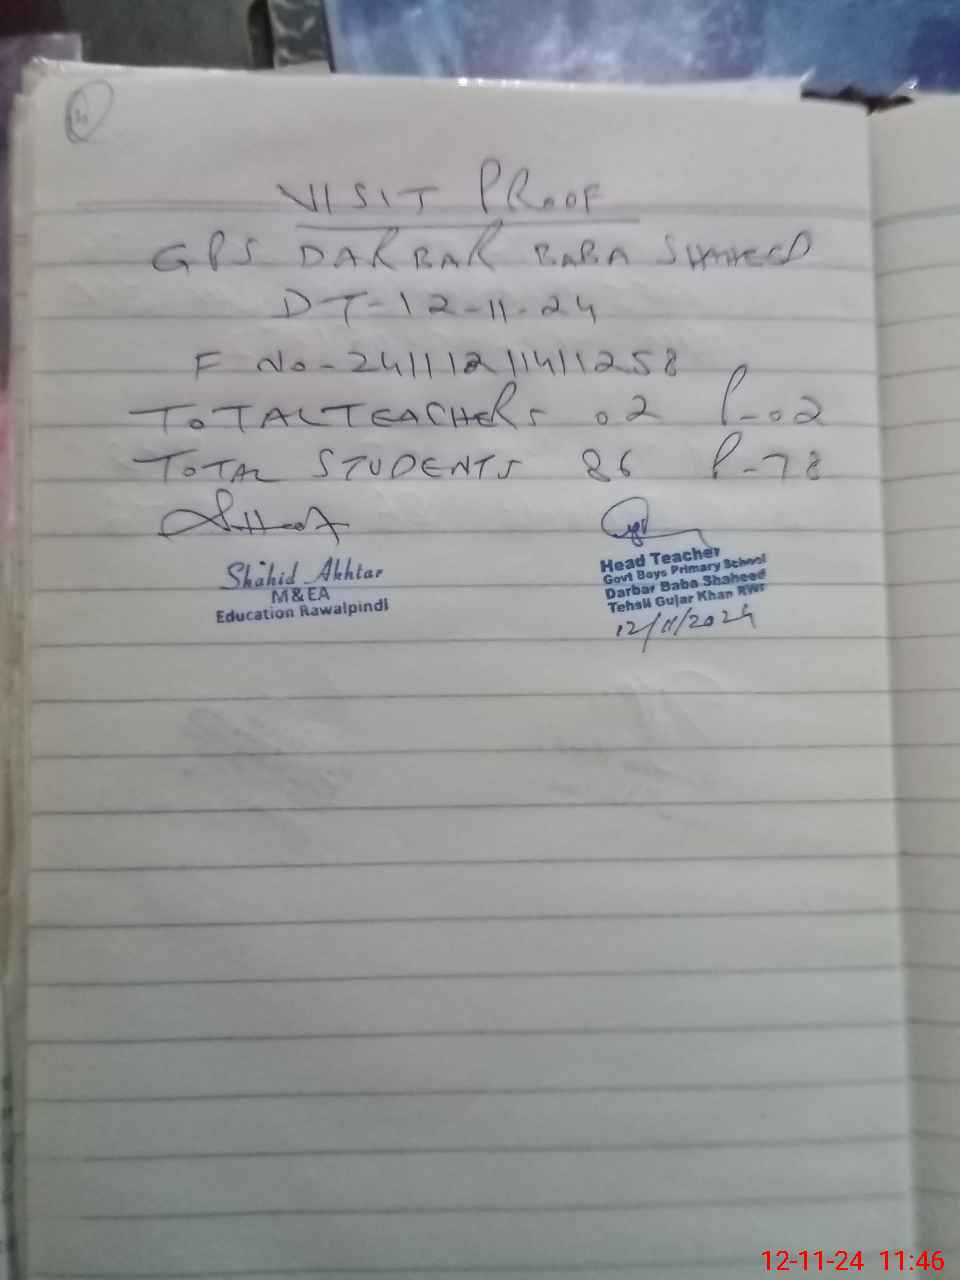 VISIT PROOF
GPS DARBAR BABA SHAHEED
DT-12-11-24
F No-241112114111258
TOTAL TEACHERS 02 P-02
TOTAL STUDENTS 86 P-78
Shahid Akhtar
M&EA
Education Rawalpindi
Head Teacher
Govt Boys Primary School
Darbar Baba Shaheed
Tehsil Gujar Khan RWP
12/11/2024
12-11-24 11:46